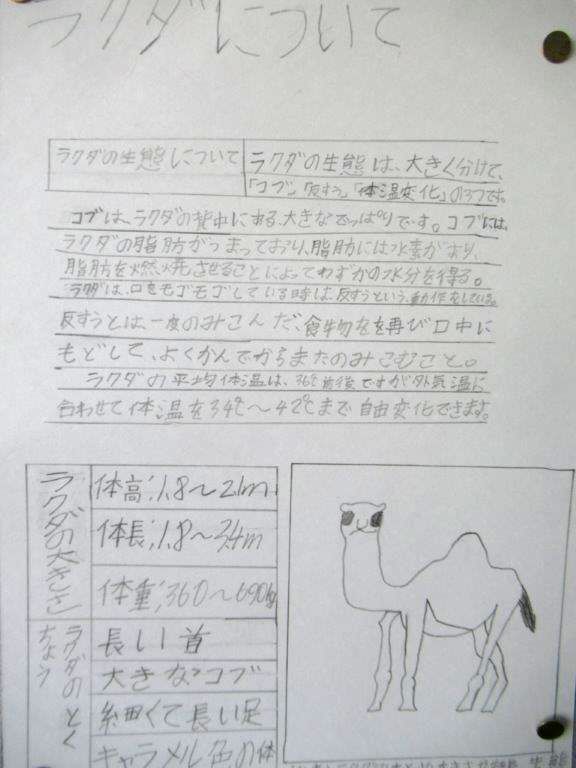 ラクダについて
ラクダの生態について
ラクダの生態は、大きく分けて、
「コブ」、反すう」、「体温変化」の3つです。
コブは、ラクダの背中にある、大きなでっぱりです。コブには、
ラクダの脂肪がつまっており、脂肪には水素があり、
脂肪を燃焼させることによってわずかの水分を得る。
ラクダは、口をモゴモゴしている時は、反すうという、動作をしている。
反すうとは、一度のみこんだ、食物をを再び口中に
もどして、よくかんでからまたのみこむこと。
ラクダの平均体温は、36℃前後ですが外気温に
合わせて体温を34℃〜42℃まで自由変化できます。
ラクダの大きさ
体高;1.8〜2.1m
体長;1.8〜3.4m
体重;360〜690kg
ラクダのとく
ちょう
長い首
大きなコブ
細くて長い足
キャラメル色の体